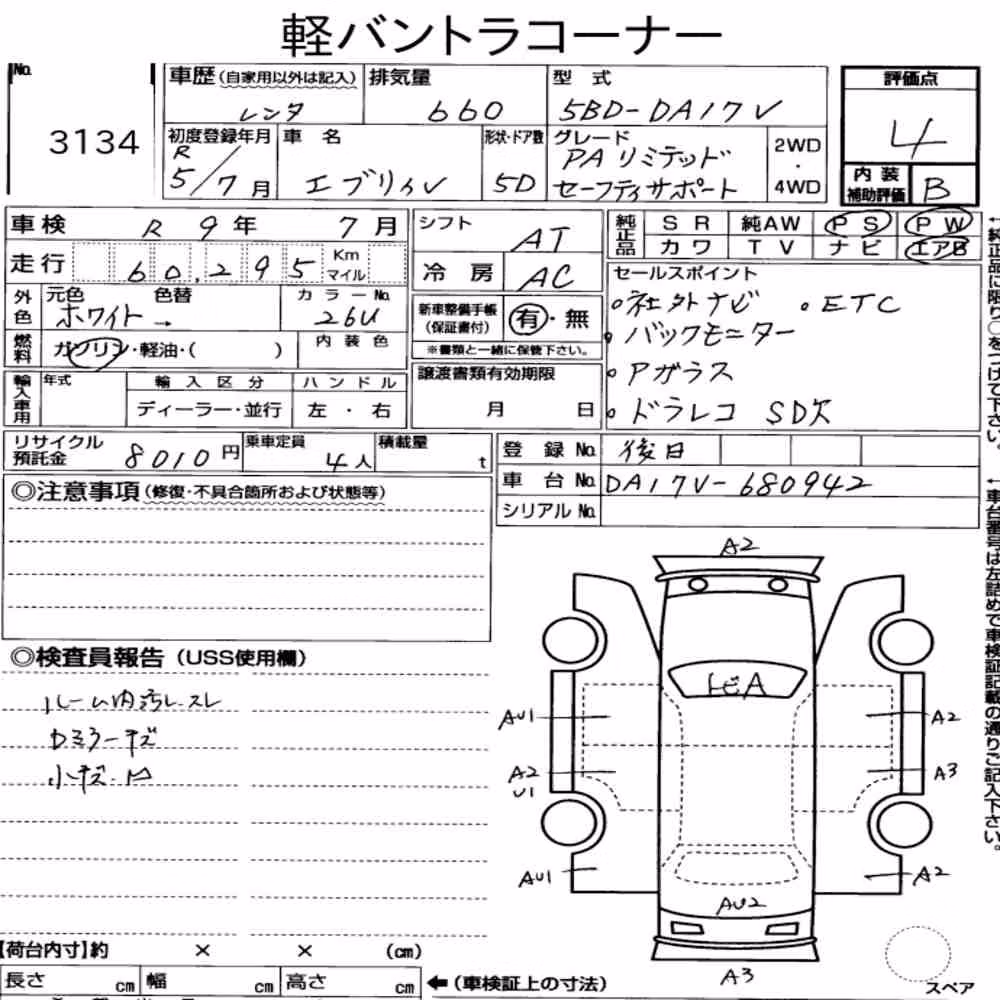 軽バントラコーナー
No. 3134
車歴(自家用以外は記入) レンタ
排気量 660
型式 5BD-DA17V
評価点 4
初度登録年月 R5/7月
車名 エブリィV
形状・ドア数 5D
グレード PAリミテッド
セーフティサポート
2WD・4WD
内装補助評価 B
車検 R 9年 7月
走行 60,295 Km マイル
シフト AT
冷房 AC
純正品 SR 純AW PS PW
カワ TV ナビ エアB
外色 元色 ホワイト → 色替
カラーNo. 26U
燃料 ガソリン・軽油・( )
内装色
新車整備手帳(保証書付) 有・無
※書類と一緒に保管下さい。
セールスポイント
・社外ナビ ・ETC
・バックモニター
・Aガラス
・ドラレコ SD欠
輸入車用 年式
輸入区分 ディーラー・並行
ハンドル 左・右
譲渡書類有効期限
月 日
リサイクル預託金 8010円
乗車定員 4人
積載量 t
登録No. 後日
車台No. DA17V-680942
シリアルNo.
◎注意事項(修復・不具合箇所および状態等)
◎検査員報告(USS使用欄)
ルーム内汚レスレ
Dミラーキズ
小キズ・凹
A2
トビA
AU1
A2
A2
U1
A3
AU1
A2
AU2
A3
スペア
【荷台内寸】約 × × (cm)
長さ cm 幅 cm 高さ cm
←(車検証上の寸法)
←純正品に限り○をつけて下さい。
←車台番号は左詰めで車検証記載の通りご記入下さい。